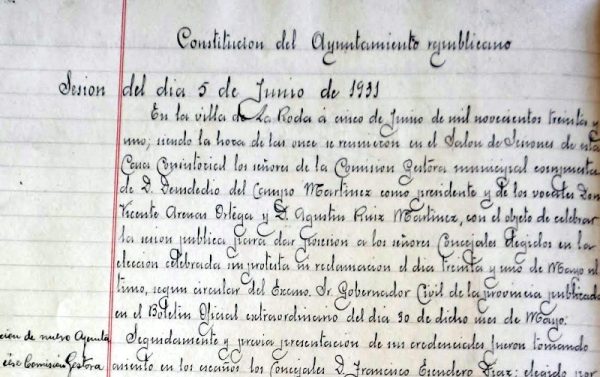 Constitucion del Ayuntamiento republicano
Sesion del dia 5 de Junio de 1931
En la villa de La Roda á cinco de Junio de mil novecientos treinta y
uno; siendo la hora de las once se reunieron en el Salon de Sesiones de esta
Casa Consistorial los señores de la Comision Gestora municipal compuesta
de D. Deusdedio del Campo Martinez como presidente y de los vocales Don
Vicente Arenas Ortega y D. Agustin Ruiz Martinez, con el objeto de celebrar
la sesion publica para dar posesion a los señores Concejales elegidos en la
eleccion celebrada sin protesta ni reclamacion el dia treinta y uno de Mayo ul
timo, segun circular del Excmo. Sr. Gobernador Civil de la provincia publicada
en el Boletin Oficial extraordinario del dia 30 de dicho mes de Mayo.
Seguidamente y previa presentacion de sus credenciales fueron tomando
asiento en los escaños los Concejales D. Francisco Escudero Diaz; elegido por
cion de nuevo Ayunta
Comision Gestora